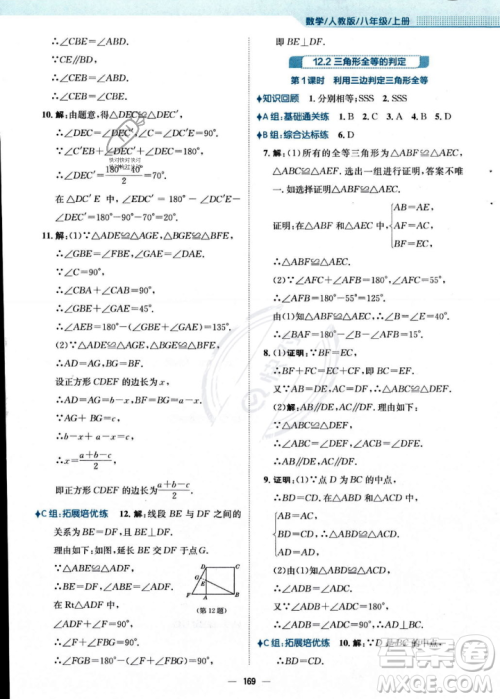 数学/人教版/八年级/上册
∴∠CBE=∠ABD.
∵∠CFE=∠ABD,
∴∠CBE=∠CFE.
10. 解:由题意,得△DEC≌△DEC′,
∴∠DEC=∠DEC′.
∵∠C′EB+∠DEC+∠DEC′=180°,
又∵∠C′EB=∠FEC′+∠BEF=40°,
∴∠DEC′=
=70°.
在△DC′E中,∠C′DE=180°-∠DEC′-
∠DC′E=180°-70°-90°=20°.
11. 解:(1)∵△ADE≌△AGE,△BDF≌△BGF,
∴∠GBE=∠FBE,∠GAE=∠LAE.
∵∠C=90°,
∴∠CBA+∠CAB=90°.
∴∠GBF+∠GAE=45°.
∴∠AFB=180°-(∠GBF+∠GAE)=135°.
(2)∵△ADE≌△AGE,△BDF≌△BGF,
∴AD=AG,BG=BD.
设正方形CDEF的边长为x,
∵AG+BG=c,
∴b-x+a-x=c.
∴x=a+b-c
2
即正方形CDEF的边长为a+b-c
2
C组:拓展培优练 12. 解:线段BE与DF之间的
关系为BE=DF,BE⊥DF.
理由如下:如图,延长BE交DF于点G.
∵△ABE≌△ADF,
∴BE=DF,
∠ABE=∠ADF.
在Rt△ADF中,
(第12题)
∠ADF+∠F=90°,
∴∠ABE+∠F=90°.
∴∠FGB=90°.
∴BE⊥DF.
12.2 三角形全等的判定
第1课时 利用三边判定三角形全等
知识回顾 1. 分别相等;SSS 2. SSS
A组:基础通关练 1. B 2. C 3. A 4. B 5. C
B组:综合达标练 6. D
7. 解:(1)所有的全等三角形为△ABF≌△AEC,
△ABE≌△AEF,△ABC≌△AEF.
如选择证明△ABF≌△AEC,答案不唯一.
证明:在△ABF和△AEC中,
AB=AE,
AF=AC,
BF=EC,
∴△ABF≌△AEC.
(2)∵∠AFC+∠AFB=180°,
∴∠AFB=180°-∠AFC=180°-
由(1)知△ABF≌△AEC,
∴∠ACE=∠AFB=
8. 证明:(1)∵BF=EC,
∴BF+FC=EC+CF,即BC=EF.
又∵AB=DE,AC=DF,
∴△ABC≌△DEF.
(2)解:AB∥DE,AC∥DF.理由如下:
由(1)知△ABC≌△DEF,
∴∠ABC=∠DEF,∠ACB=∠DFE.
∴AB∥DE,AC∥DF.
9. 证明:(1)∵点D为BC的中点,
∴BD=CD.在△ABD和△ACD中,
AB=AC,
AD=AD,
BD=CD,
∴△ABD≌△ACD.
(2)由(1)知△ABD≌△ACD,
∴∠ADB=∠ADC.
又∵∠ADB+∠ADC=180°,
∴∠ADB=90°.
C组:拓展培优练 10. 解:∵D是BC的中点,
169